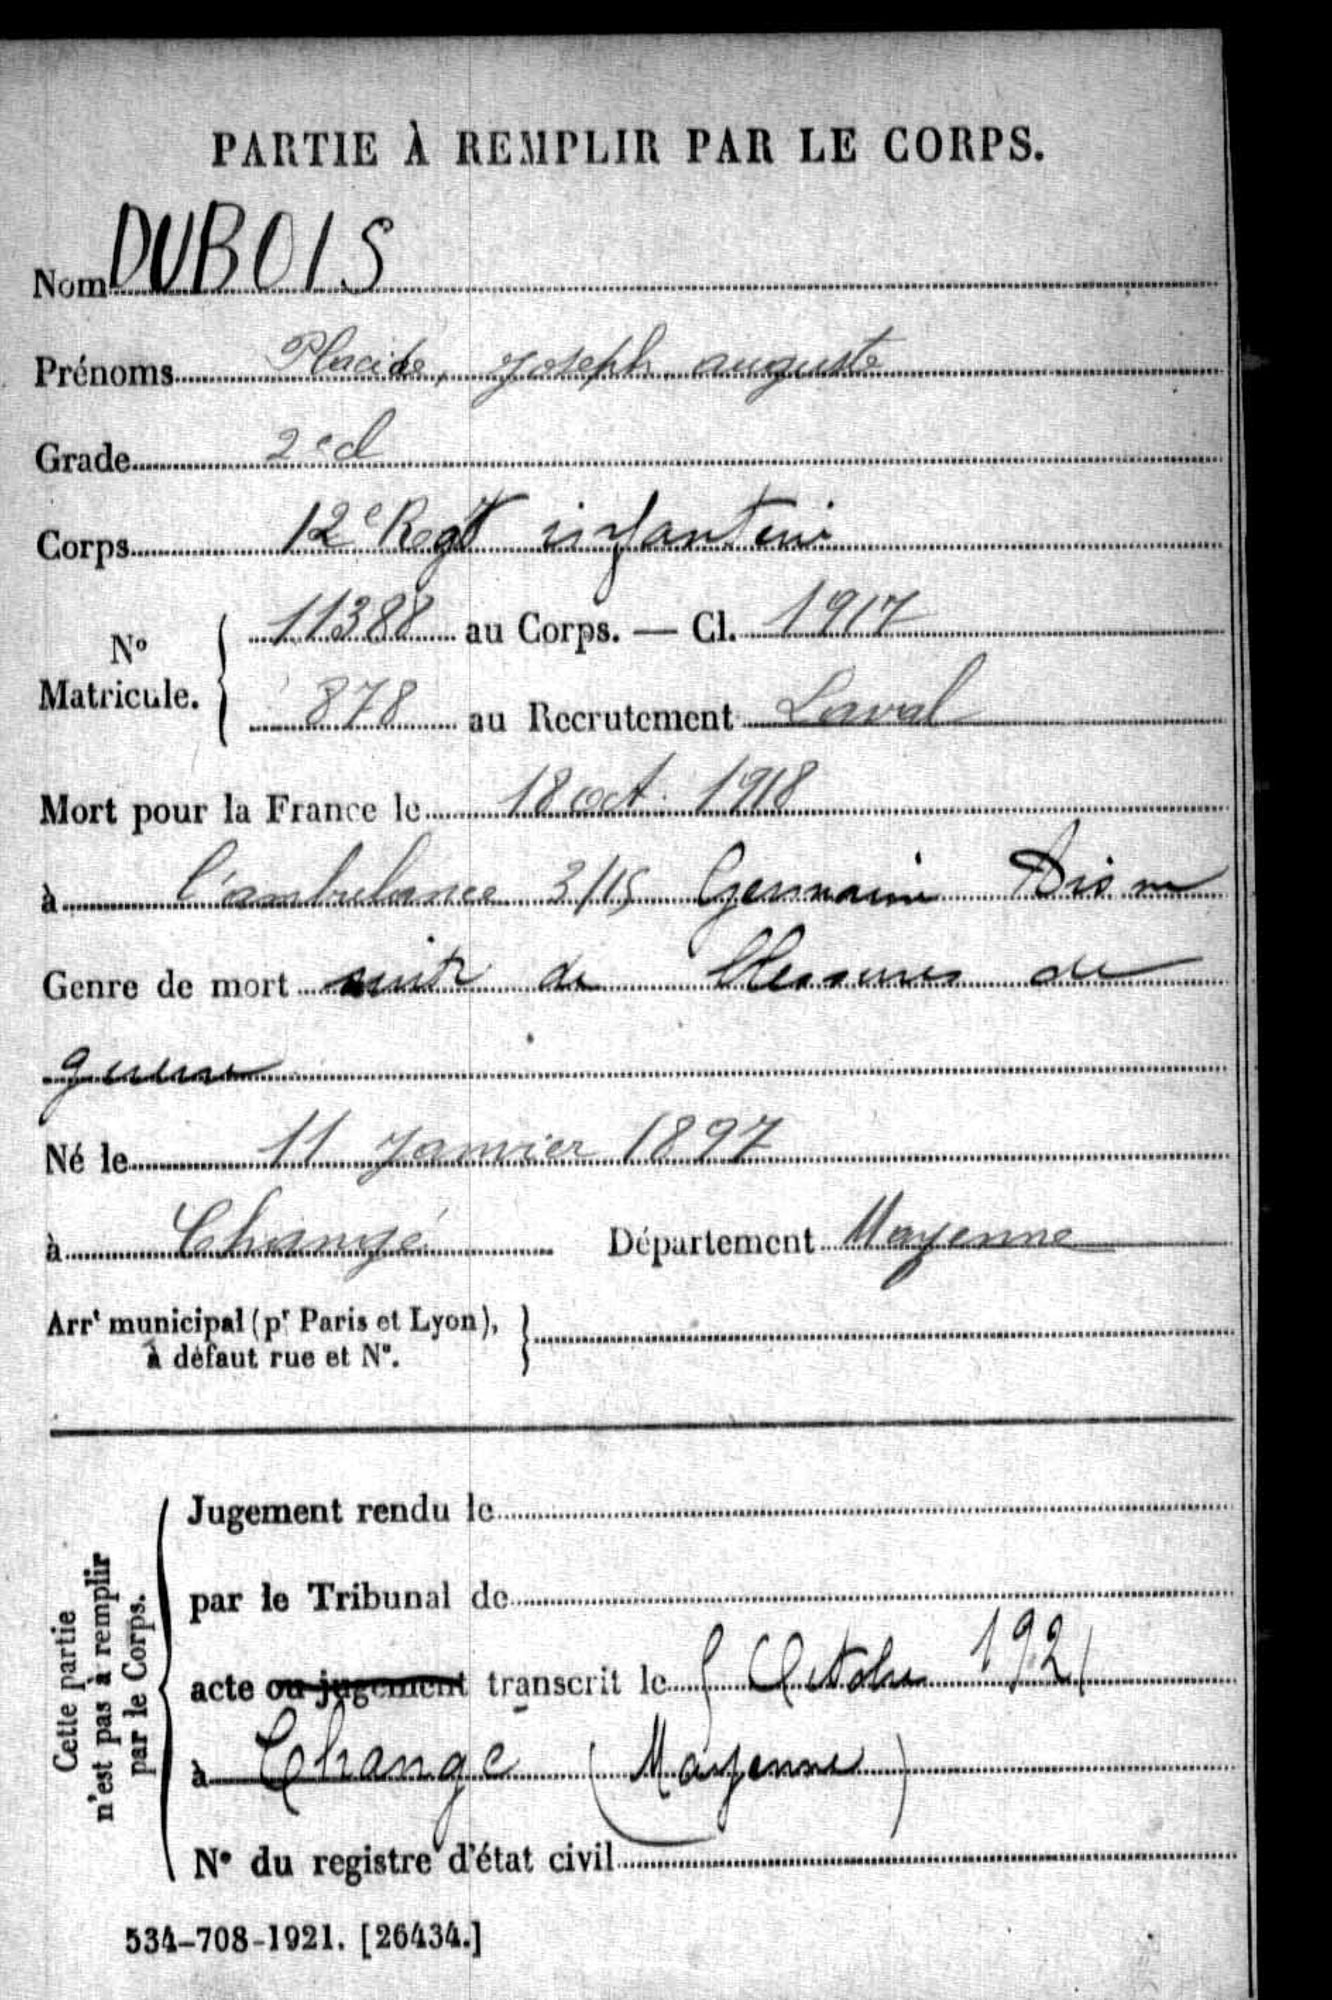 PARTIE À REMPLIR PAR LE CORPS.
Nom DUBOIS
Prénoms Placide, Joseph auguste
Grade 2e cl
Corps 12e Regt infanterie
No Matricule. 11388 au Corps. — Cl. 1917
878 au Recrutement Laval
Mort pour la France le 18 oct. 1918
à l'ambulance 3/15 Germaine Aisne
Genre de mort suite de blessures de
guerre
Né le 11 Janvier 1897
à Changé Département Mayenne
Arrt municipal (pr Paris et Lyon),
à défaut rue et N°.
Cette partie
n'est pas à remplir
par le Corps.
Jugement rendu le
par le Tribunal de
acte ou jugement transcrit le Octobre 1921
à Changé (Mayenne)
N° du registre d'état civil
534-708-1921. [26434.]